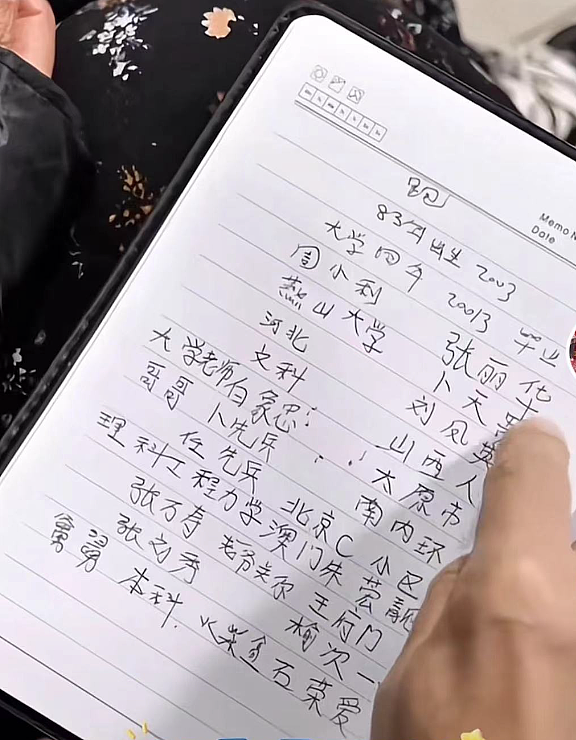 Memo N
Date
跑
83年出生 2003
大学四年 20013 毕业
周小利 张丽华
燕山大学 卜天
河北 刘凤英
文科 山西人
大学老师白家思; 太原市
哥哥 卜先兵 南内环
任先兵 北京C 小区
理科工程力学澳门朱芸靓
张万寿 王府门
张刘秀 榆次一
本科. 火柴贪石荣爱